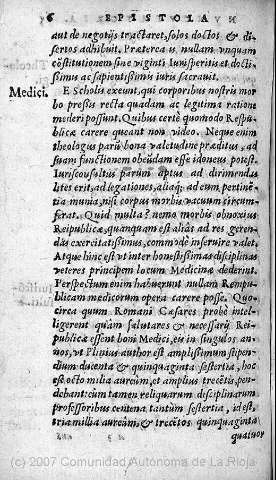 6 EPISTOLA
aut de negotijs tractaret, solos doctos & di-
sertos adhibuit. Præterea is, nullam vnquam
cōstitutionem sine viginti Iurisperitis et docti-
ssimis ac sapientissimis iuris sacrauit.
Medici. E Scholis exeunt, qui corporibus nostris mor
bo pressis recta quadam ac legitima ratione
mederi possunt. Quibus certè quomodo Respu-
blicæ carere queant non video. Neque enim
theologus parū bona valetudine præditus, ad
suam functionem obeūdam esse idoneus potest.
Iurisconsultus parum aptus ad dirimendas
lites erit, ad legationes, aliaq; ad eum pertinē-
tia munia, nisi corpus morbis vacuum circum-
ferat. Quid multa? nemo morbis obnoxius
Reipublicæ, quanquam est aliâs ad res geren-
das exercitatissimus, commodè inseruire valet.
Atque hinc est vt inter honestissimas disciplinas
veteres principem locum Medicinæ dederint.
Perspectum enim habuerunt nullam Rempu-
blicam medicorum opera carere posse. Quo-
circa quum Romani Cæsares probè intel-
ligerent quàm salutares & necessarij Rei-
publicæ essent boni Medici, eis in singulos an-
nos, vt Plinius author est amplissimum stipen-
dium ducenta & quinquaginta sestertia, hoc
est octo milia aureūm, et amplius trecētis, pen-
debant: cùm tamen reliquarum disciplinarum
professoribus centena tantùm sestertia, id est,
tria millia aureūm, & trecētos quinquaginta
quatuor
(c) 2007 Comunidad Autónoma de La Rioja